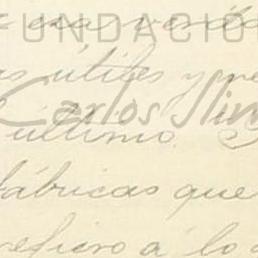 era verda
FUNDACIÓN
as útiles y re
Carlos Slim
último.
fábricas que
refiero á lo